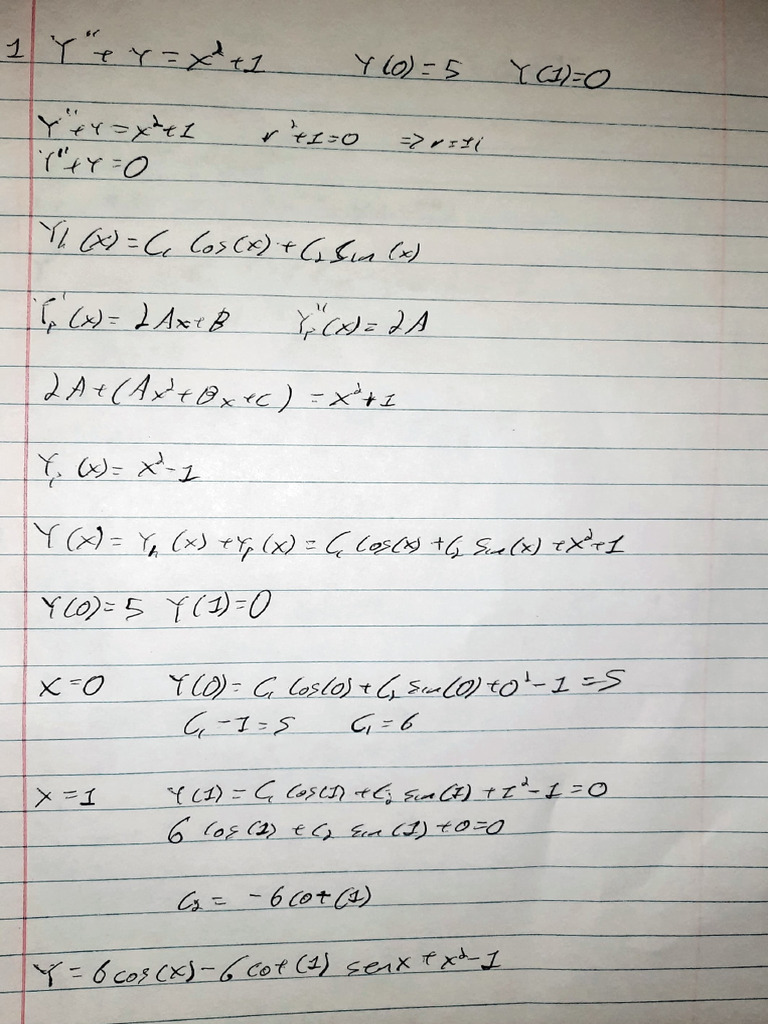 1 Y'' + Y = x² + 1 Y(0) = 5 Y(1) = 0
Y'' + Y = x² + 1 r² + 1 = 0 => r = ±i
Y'' + Y = 0
Yh(x) = C₁ Cos(x) + C₂ Sen(x)
Yp'(x) = 2Ax + B Yp''(x) = 2A
2A + (Ax² + Bx + C) = x² + 1
Yp(x) = x² - 1
Y(x) = Yh(x) + Yp(x) = C₁ Cos(x) + C₂ Sen(x) + x² + 1
Y(0) = 5 Y(1) = 0
x = 0 Y(0) = C₁ Cos(0) + C₂ sen(0) + 0² - 1 = 5
C₁ - 1 = 5 C₁ = 6
x = 1 Y(1) = C₁ Cos(1) + C₂ sen(1) + 1² - 1 = 0
6 Cos(1) + C₂ sen(1) + 0 = 0
C₂ = -6 cot(1)
Y = 6 cos(x) - 6 cot(1) senx + x² - 1